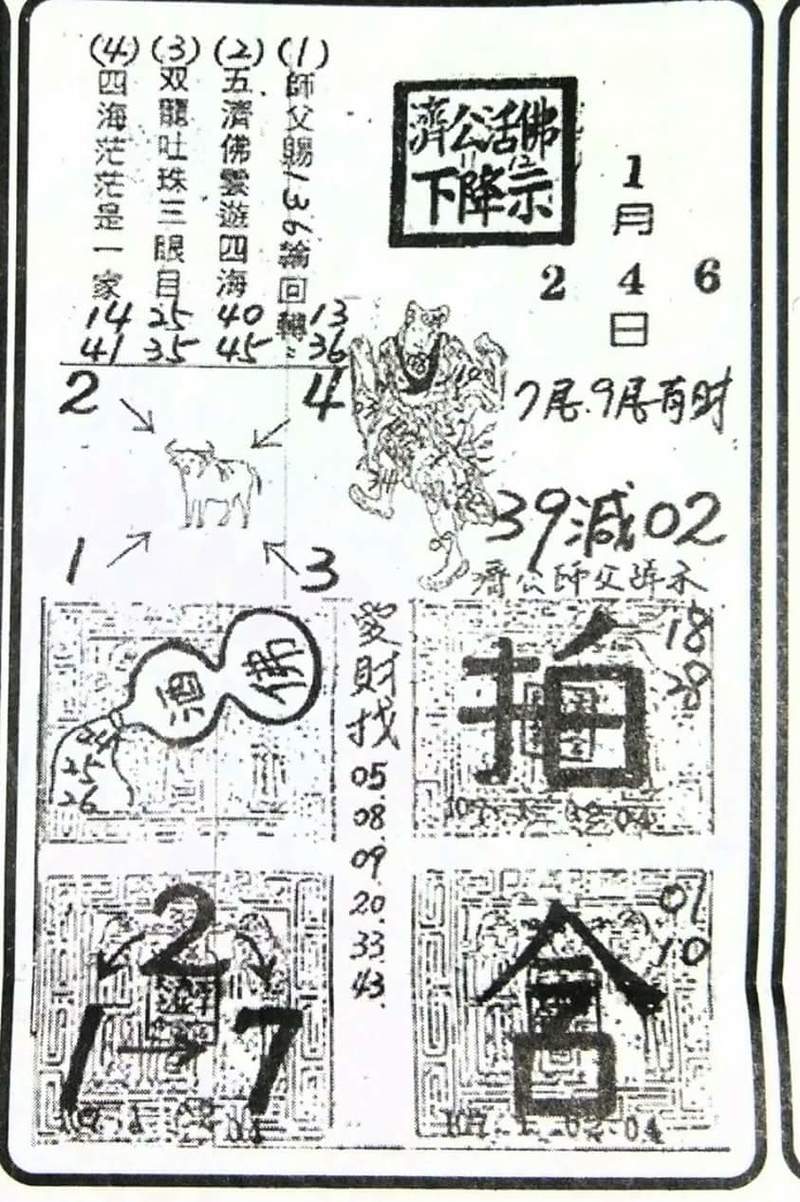 (1)師父賜136論回轉
13
36
(2)五濟佛雲遊四海
40
45
(3)双龍吐珠三眼目
25
35
(4)四海茫茫是一家
14
41
濟公活佛
11 12
下降示
1
月
2 4 6
日
7尾.9尾有財
39減02
濟公師父諄示
2 4
1 3
佛
酒
24
25
26
發財找
05
08.
09
20.
33.
43.
拍
18
28
2
1→7
合
01
10
107. 1. 02. 04